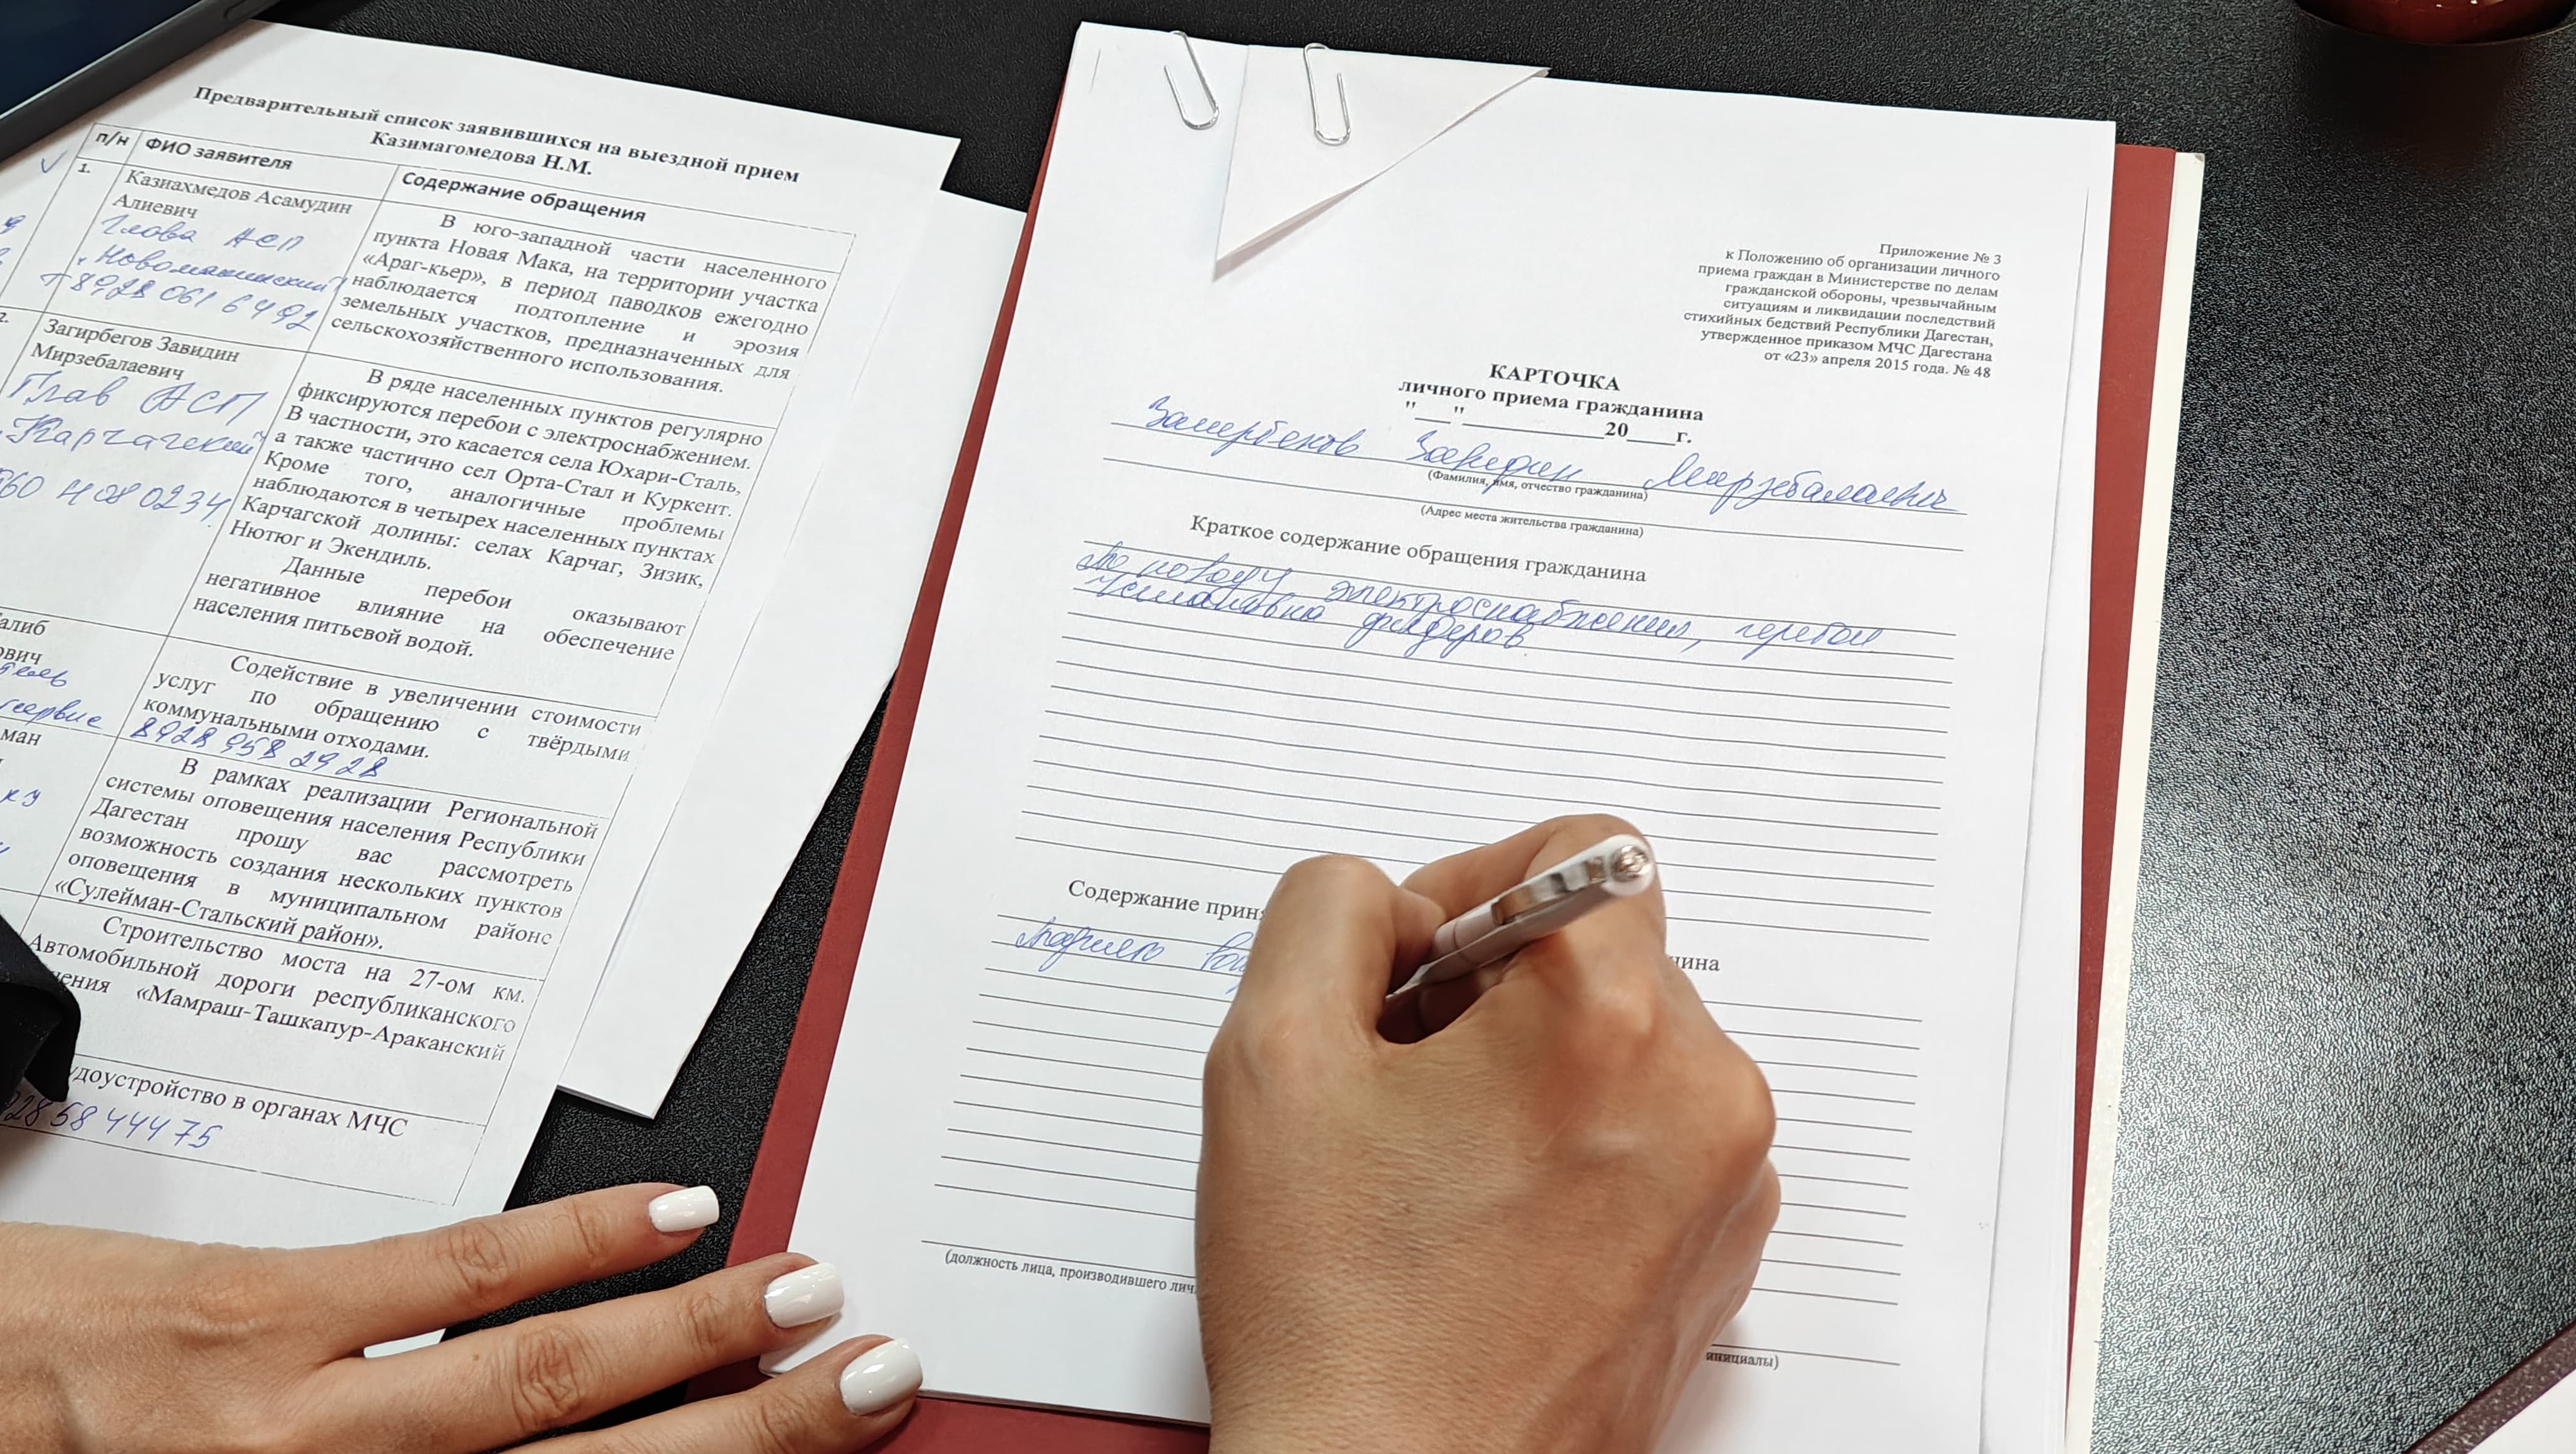 Предварительный список заявившихся на выездной прием
Казимагомедова Н.М.
п/н ФИО заявителя Содержание обращения
1.
Казиахмедов Асамудин
Алиевич
Глава АСП
Новомакинский
8928 061 64 92
В юго-западной части населенного
пункта Новая Мака, на территории участка
«Араг-кьер», в период паводков ежегодно
наблюдается подтопление и эрозия
земельных участков, предназначенных для
сельскохозяйственного использования.
2.
Загирбегов Завидин
Мирзебалаевич
Глав АСП
Карчагский
60 408 02 34
В ряде населенных пунктов регулярно
фиксируются перебои с электроснабжением.
В частности, это касается села Юхари-Сталь,
а также частично сел Орта-Стал и Куркент.
Кроме того, аналогичные проблемы
наблюдаются в четырех населенных пунктах
Карчагской долины: селах Карчаг, Зизик,
Нютюг и Экендиль.
Данные перебои оказывают
негативное влияние на обеспечение
населения питьевой водой.
алиб
ович
сервис
Содействие в увеличении стоимости
услуг по обращению с твёрдыми
коммунальными отходами.
8928 958 29 28
ман
В рамках реализации Региональной
системы оповещения населения Республики
Дагестан прошу вас рассмотреть
возможность создания нескольких пунктов
оповещения в муниципальном районе
«Сулейман-Стальский район».
Строительство моста на 27-ом км.
Автомобильной дороги республиканского
чения «Мамраш-Ташкапур-Араканский
удоустройство в органах МЧС
28 58 444 75
Приложение № 3
к Положению об организации личного
приема граждан в Министерстве по делам
гражданской обороны, чрезвычайным
ситуациям и ликвидации последствий
стихийных бедствий Республики Дагестан,
утвержденное приказом МЧС Дагестана
от «23» апреля 2015 года. № 48
КАРТОЧКА
личного приема гражданина
"___"____________20____г.
Загирбеков Завидин Мирзебалаевич
(Фамилия, имя, отчество гражданина)
(Адрес места жительства гражданина)
Краткое содержание обращения гражданина
По поводу электроснабжения, перебои
Установка фидеров.
Содержание приня
чина
(должность лица, производившего лич
инициалы)